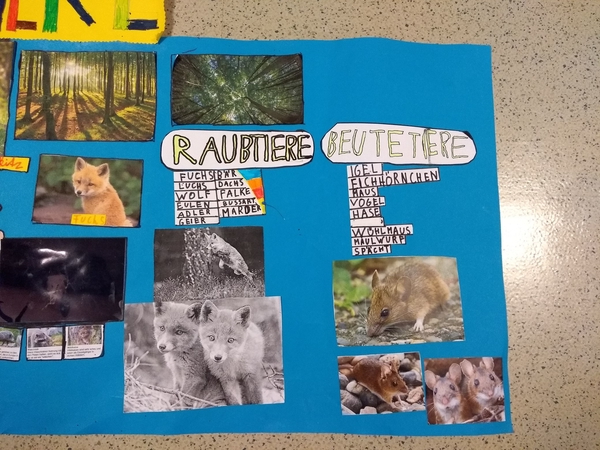 RAUBTIERE
FUCHS BÄR
LUCHS DACHS
WOLF FALKE
EULEN BUSSART
ADLER MARDER
GEIER
BEUTETIERE
IGEL
EICHHÖRNCHEN
MAUS
VOGEL
HASE
WÜHLMAUS
MAULWURF
SPÄCHT
Fuchs